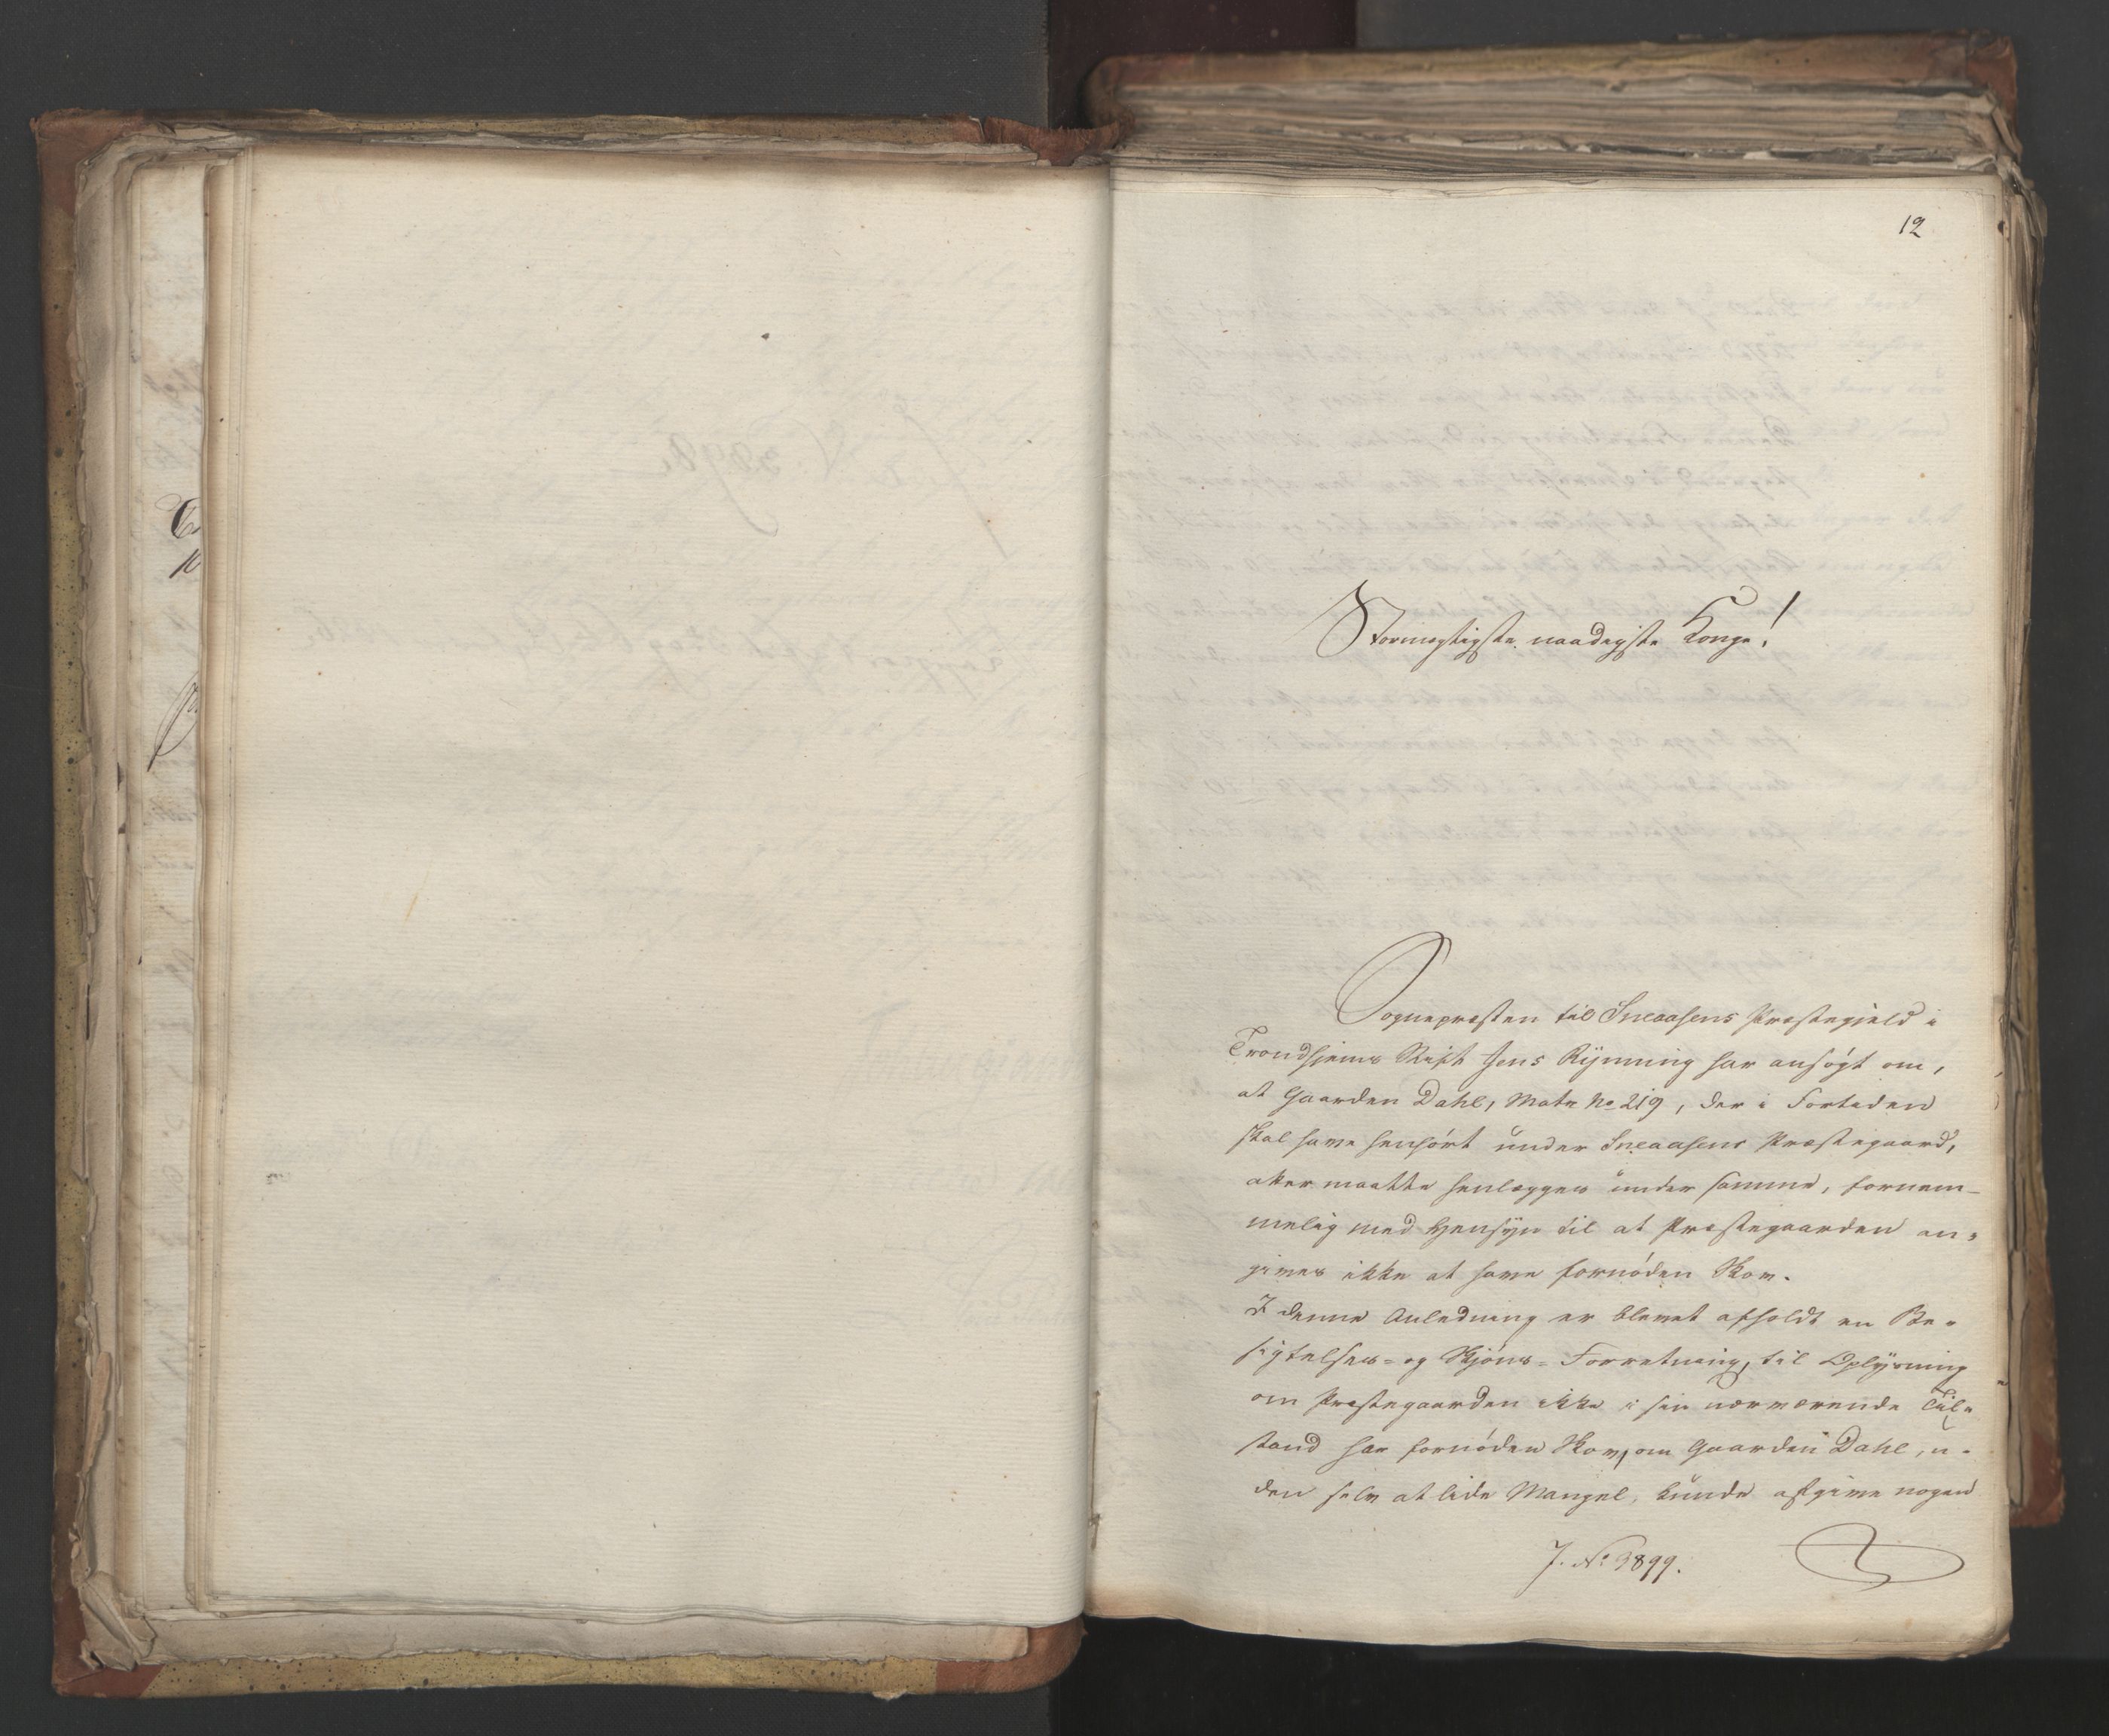 12
Stormægtigste naadigste Konge!
Sognepræsten til Sneaasens Præstegjeld i
Trondhjems Stift Jens Rynning har ansøgt om,
at Gaarden Dahl, Matr. No 219, der i Fortiden
skal have henhørt under Sneaasens Præstegaard,
atter maatte henlægges under samme, fornem-
melig med Hensyn til at Præstegaarden an-
gives ikke at have fornøden Skov.
I denne Anledning er blevet afholdt en Be-
sigtelses- og Skjøns-Forretning, til Oplysning
om Præstegaarden ikke i sin nærværende Til-
stand har fornøden Skov, om Gaarden Dahl, u-
den selv at lide Mangel, kunde afgive nogen
J. No 3899.